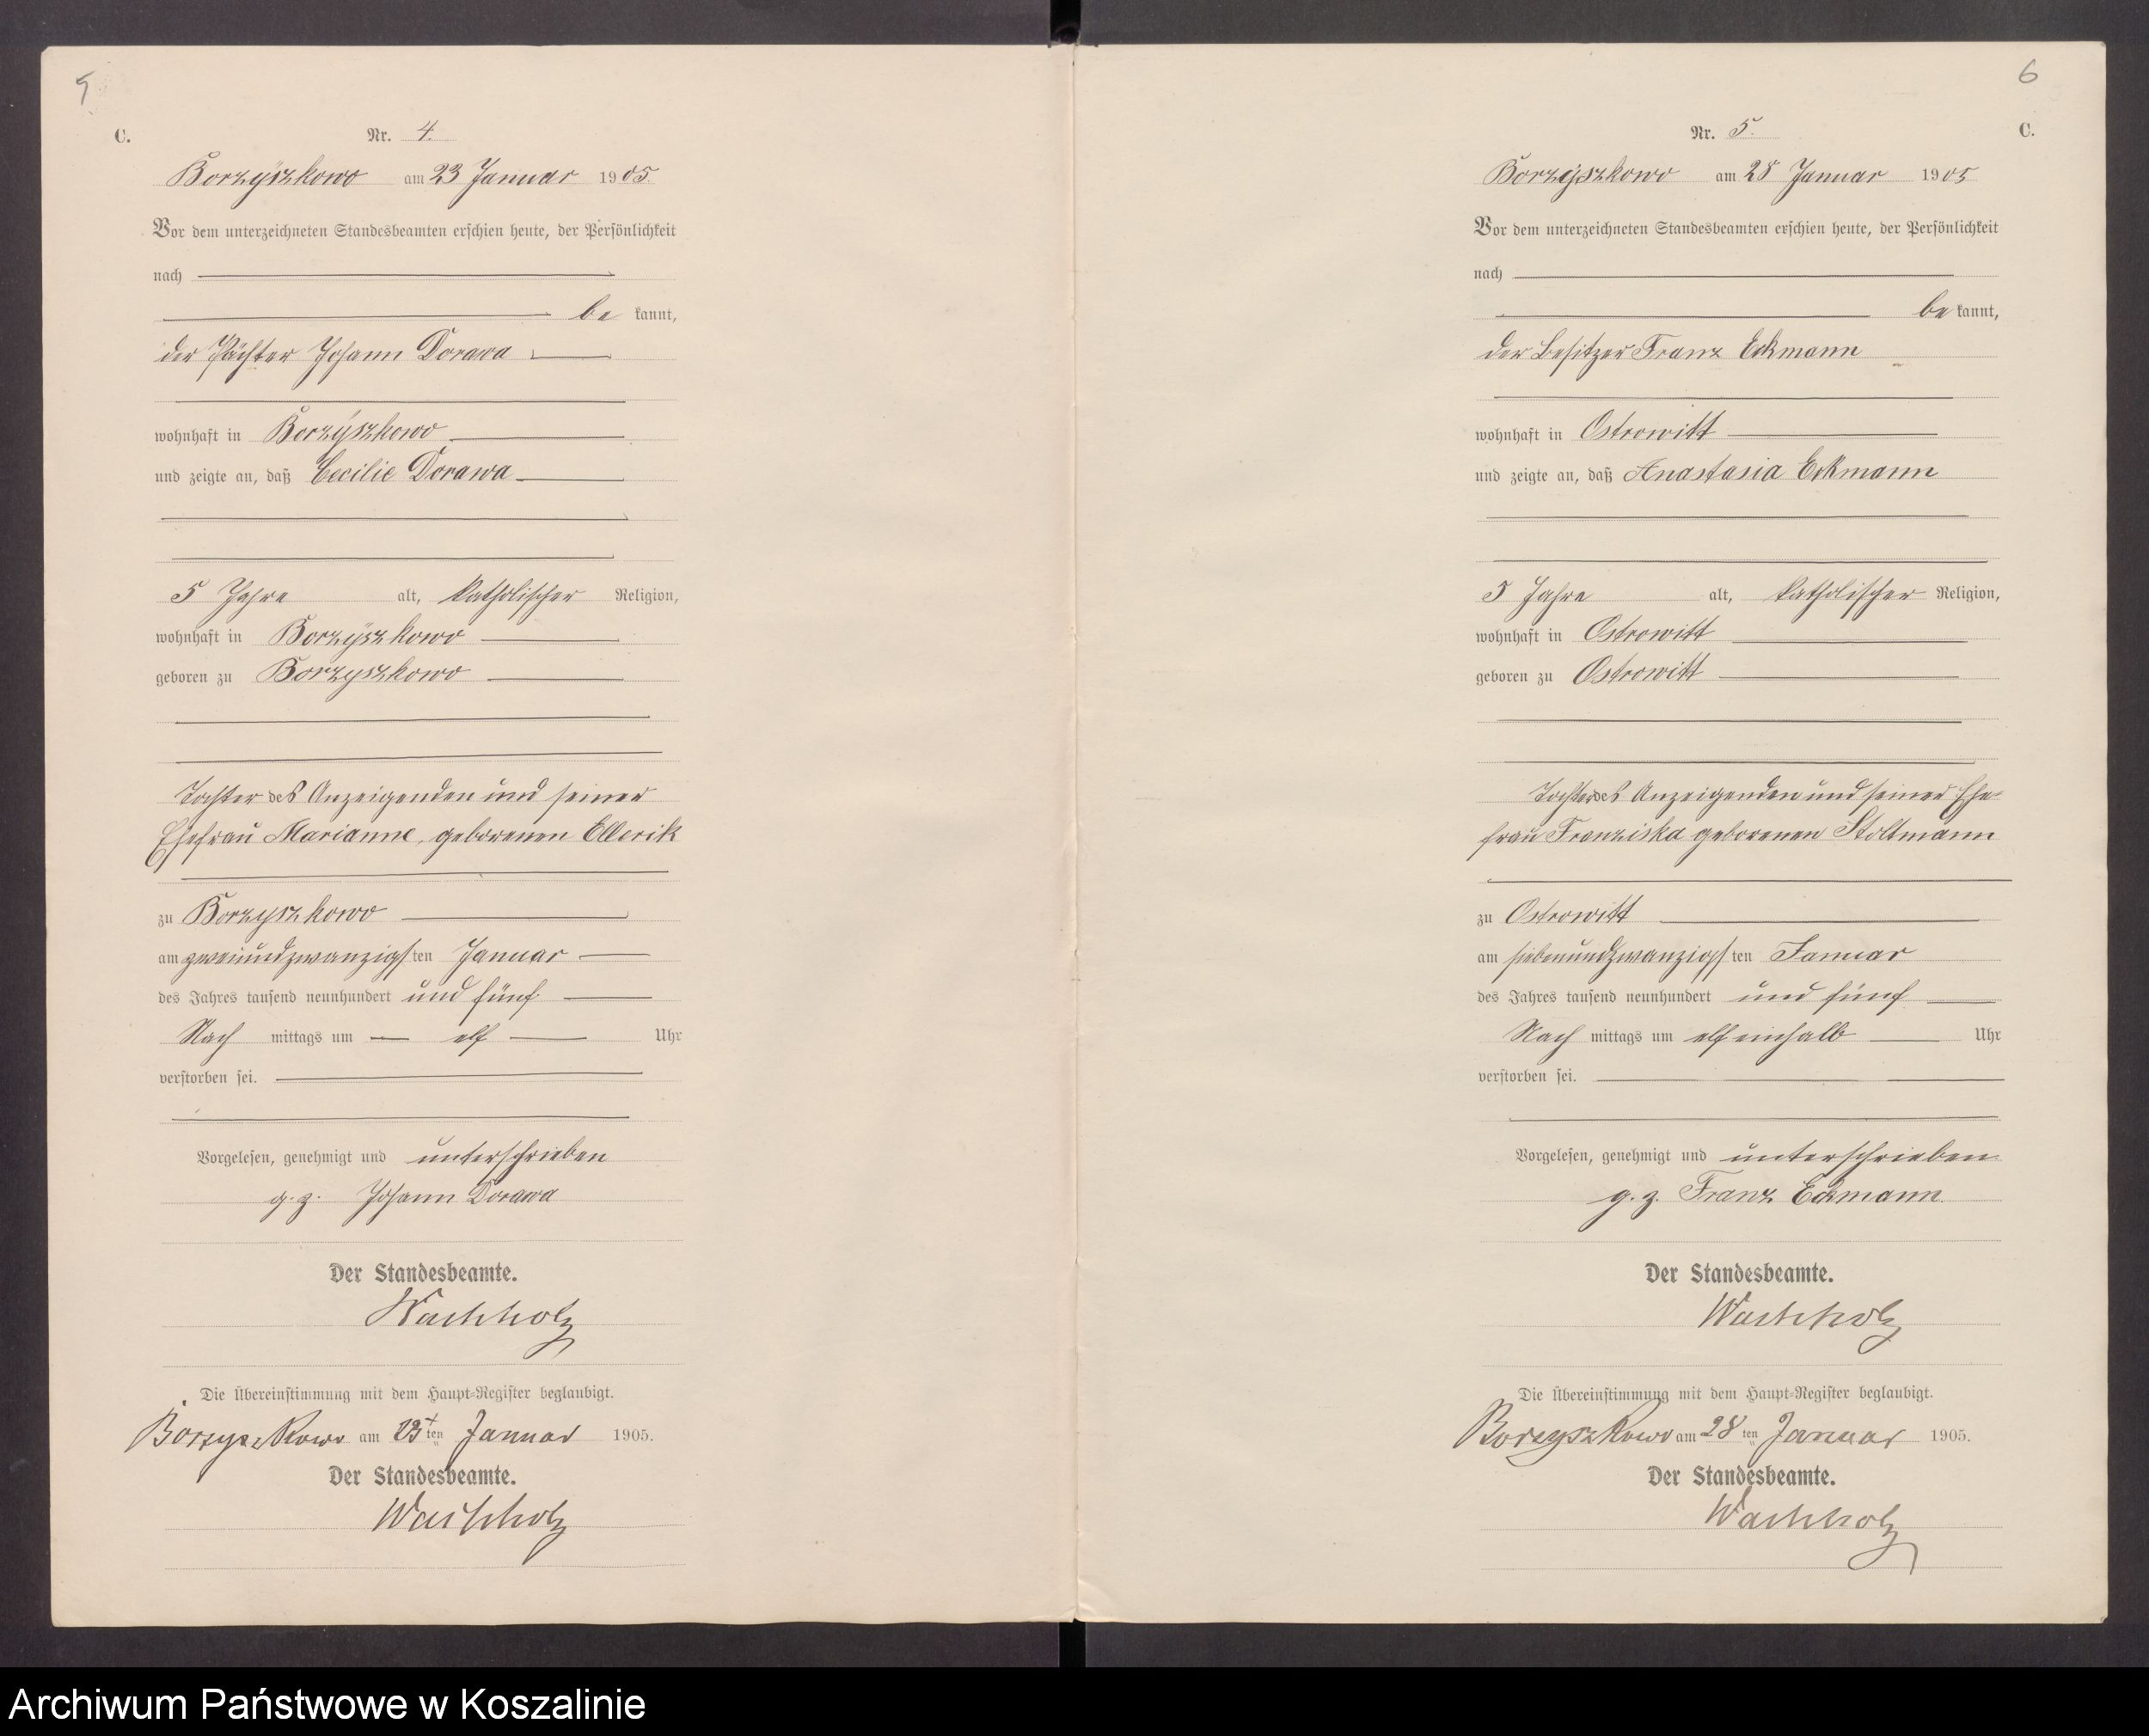 5
C.
Nr. 4.
Borzyszkowo am 23 Januar 1905.
Vor dem unterzeichneten Standesbeamten erschien heute, der Persönlichkeit
nach
be kannt,
der Pächter Johann Dorawa
wohnhaft in Borzyszkowo
und zeigte an, daß Cecilie Dorawa
5 Jahre alt, katholischer Religion,
wohnhaft in Borzyszkowo
geboren zu Borzyszkowo
Tochter des Anzeigenden und seiner
Ehefrau Marianne, geborenen Ellerik
zu Borzyszkowo
am zweiundzwanzigsten Januar
des Jahres tausend neunhundert und fünf
Nach mittags um elf Uhr
verstorben sei.
Vorgelesen, genehmigt und unterschrieben
g. z. Johann Dorawa
Der Standesbeamte.
Wachholz
Die Übereinstimmung mit dem Haupt-Register beglaubigt.
Borzyszkowo am 23ten Januar 1905.
Der Standesbeamte.
Wachholz
6
C.
Nr. 5.
Borzyszkowo am 28 Januar 1905
Vor dem unterzeichneten Standesbeamten erschien heute, der Persönlichkeit
nach
be kannt,
der Besitzer Franz Eckmann
wohnhaft in Ostrowitt
und zeigte an, daß Anastasia Eckmann
5 Jahre alt, katholischer Religion,
wohnhaft in Ostrowitt
geboren zu Ostrowitt
Tochter des Anzeigenden und seiner Ehe-
frau Franziska geborenen Stoltmann
zu Ostrowitt
am siebenundzwanzigsten Januar
des Jahres tausend neunhundert und fünf
Nach mittags um elfeinhalb Uhr
verstorben sei.
Vorgelesen, genehmigt und unterschrieben
g. z. Franz Eckmann
Der Standesbeamte.
Wachholz
Die Übereinstimmung mit dem Haupt-Register beglaubigt.
Borzyszkowo am 28ten Januar 1905.
Der Standesbeamte.
Wachholz
Archiwum Państwowe w Koszalinie